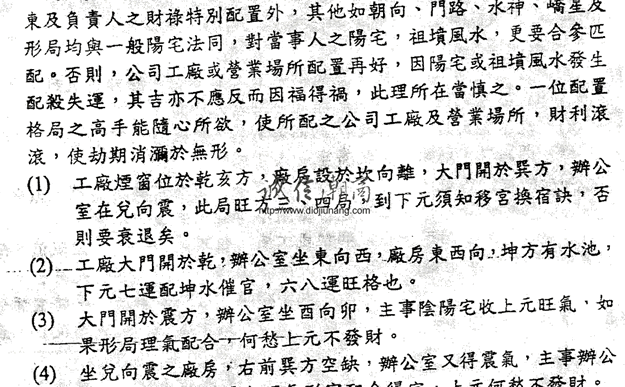 東及負責人之財祿特別配置外，其他如朝向、門路、水神、嶠星及
形局均與一般陽宅法同，對當事人之陽宅，祖墳風水，更要合參匹
配。否則，公司工廠或營業場所配置再好，因陽宅或祖墳風水發生
配殺失運，其吉亦不應反而因福得禍，此理所在當慎之。一位配置
格局之高手能隨心所欲，使所配之公司工廠及營業場所，財利滾
滾，使劫期消瀰於無形。
(1) 工廠煙窗位於乾亥方，廠房設於坎向離，大門開於巽方，辦公
室在兌向震，此局旺 三、四局，到下元須知移宮換宿訣，否
則要衰退矣。
http://www.didjiuhang.com
(2) 工廠大門開於乾，辦公室坐東向西，廠房東西向，坤方有水池，
下元七運配坤水催官，六八運旺格也。
(3) 大門開於震方，辦公室坐酉向卯，主事陰陽宅收上元旺氣，如
果形局理氣配合，何愁上元不發財。
(4) 坐兌向震之廠房，右前巽方空缺，辦公室又得震氣，主事辦公
上元何愁不發財。